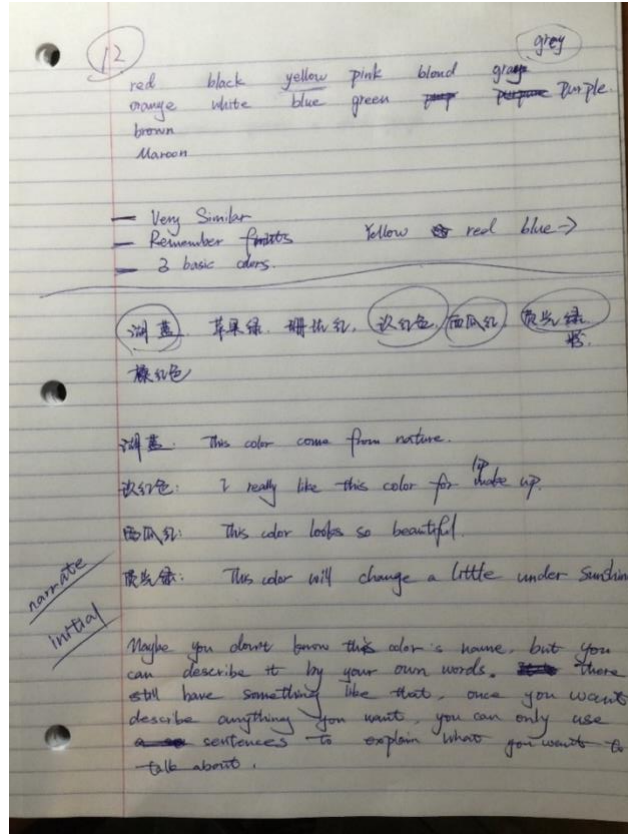 12
grey
red black yellow pink blond gray
orange white blue green purple.
brown
Maroon
— Very Similar
— Remember
Yellow red blue →
— 3 basic colors.
湖蓝. 苹果绿. 珊瑚红. 玫红色. 西瓜红. 荧光绿
橡红色
湖蓝: This color come from nature.
玫红色: I really like this color for lip make up.
西瓜红: This color looks so beautiful.
荧光绿: This color will change a little under Sunshin
narrate
initial
Maybe you don't know this color's name, but you
can describe it by your own words. there
still have something like that, once you want
describe anything you want, you can only use
sentences to explain what you want to
talk about.